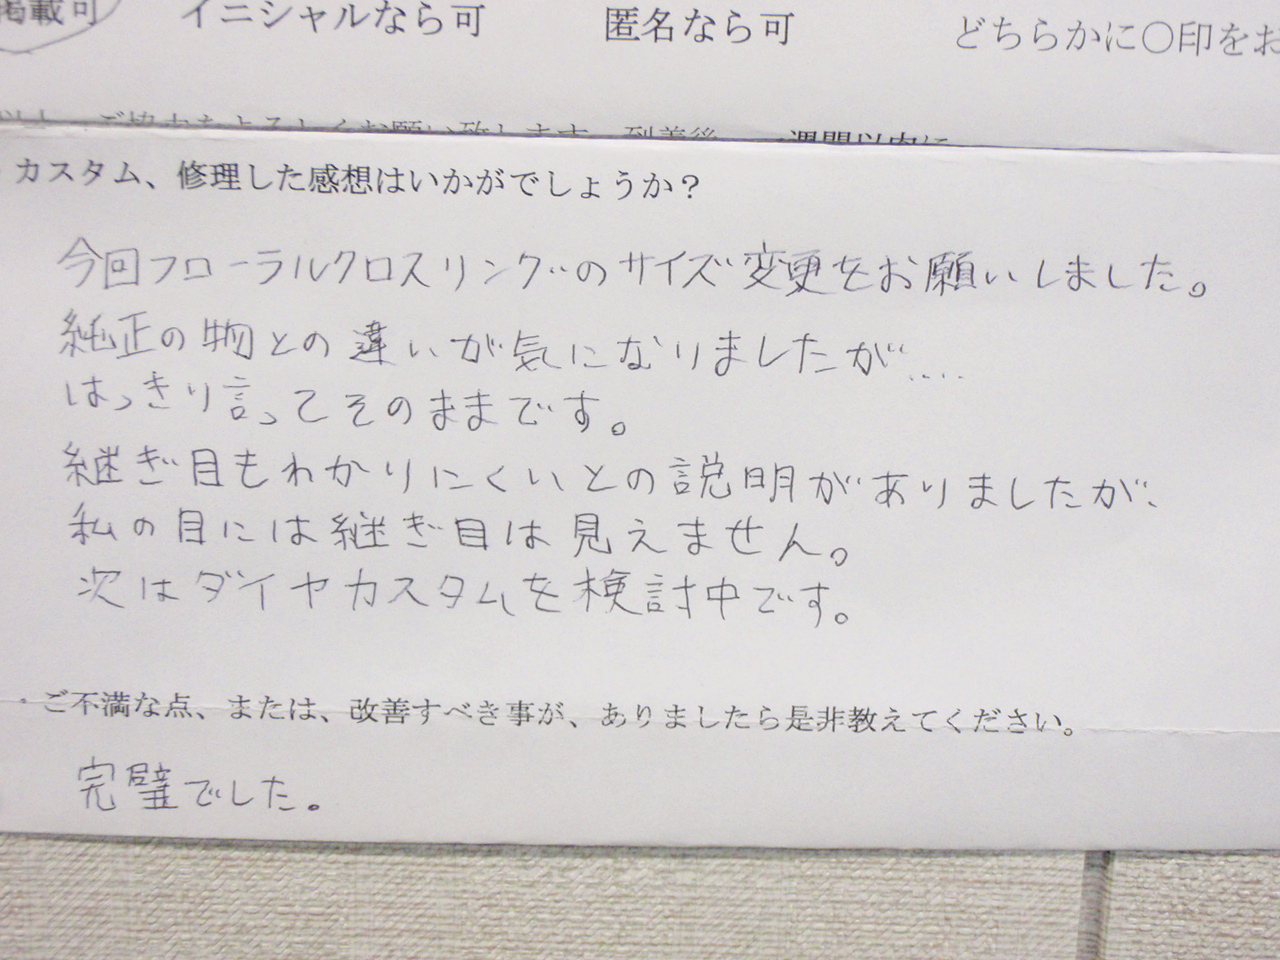 掲載可 イニシャルなら可 匿名なら可 どちらかに〇印をお
以上、ご協力をよろしくお願い致します。到着後、一週間以内に
カスタム、修理した感想はいかがでしょうか？
今回フローラルクロスリングのサイズ変更をお願いしました。
純正の物との違いが気になりましたが....
はっきり言ってそのままです。
継ぎ目もわかりにくいとの説明がありましたが、
私の目には継ぎ目は見えません。
次はダイヤカスタムを検討中です。
・ご不満な点、または、改善すべき事が、ありましたら是非教えてください。
完璧でした。